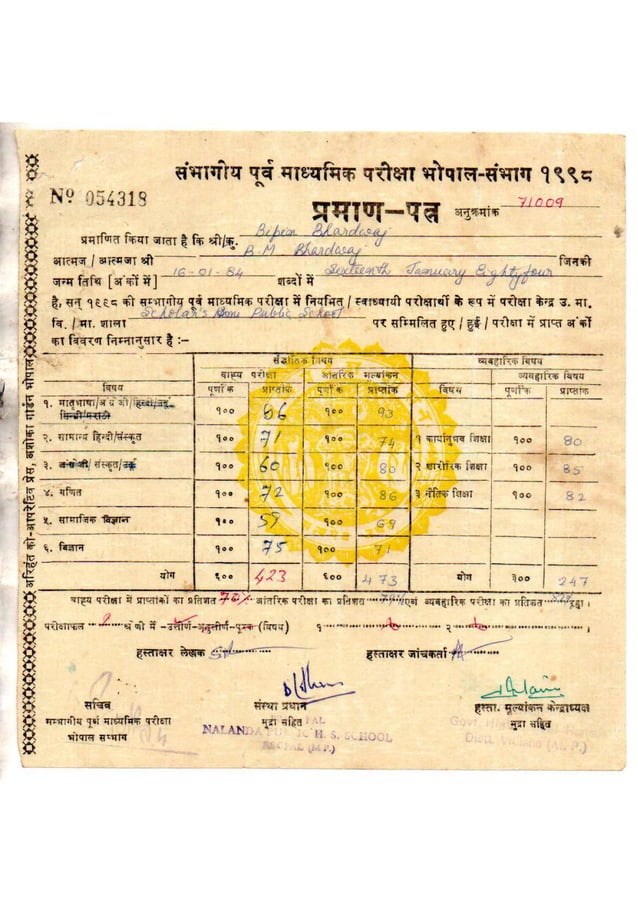 संभागीय पूर्व माध्यमिक परीक्षा भोपाल-संभाग १९९८
Nº 054318
प्रमाण-पत्र अनुक्रमांक 71009
प्रमाणित किया जाता है कि श्री/कु. Bipin Bhardwaj
आत्मज / आत्मजा श्री B.M Bhardwaj जिनकी
जन्म तिथि [अंकों में] 16-01-84 शब्दों में Sixteenth January Eighty four
है, सन् १९९८ की सम्भागीय पूर्व माध्यमिक परीक्षा में नियमित / स्वाध्यायी परीक्षार्थी के रूप में परीक्षा केन्द्र उ. मा.
वि. / मा. शाला Scholar's Home Public School पर सम्मिलित हुए / हुई / परीक्षा में प्राप्त अंकों
का विवरण निम्नानुसार है :-
सैद्धांतिक विषय व्यवहारिक विषय
विषय बाह्य परीक्षा आंतरिक मूल्यांकन व्यवहारिक विषय
पूर्णांक प्राप्तांक पूर्णांक प्राप्तांक विषय पूर्णांक प्राप्तांक
१. मातृभाषा/अंग्रेजी/हिन्दी/उर्दू १०० 86 १०० 93
सिन्धी/मराठी
२. सामान्य हिन्दी/संस्कृत १०० 71 १०० 74 १ कार्यानुभव शिक्षा १०० 80
३. अंग्रेजी/संस्कृत/उर्दू १०० 60 १०० 80 २ शारीरिक शिक्षा १०० 85
४. गणित १०० 72 १०० 86 ३ नैतिक शिक्षा १०० 82
५. सामाजिक विज्ञान १०० 59 १०० 69
६. विज्ञान १०० 75 १०० 71
योग ६०० 423 ६०० 473 योग ३०० 247
बाह्य परीक्षा में प्राप्तांकों का प्रतिशत 70% आंतरिक परीक्षा का प्रतिशत 79% एवं व्यवहारिक परीक्षा का प्रतिशत 82% रहा।
परीक्षाफल श्रेणी में उत्तीर्ण-अनुत्तीर्ण-पूरक (विषय) १ २
हस्ताक्षर लेखक हस्ताक्षर जांचकर्ता
सचिव संस्था प्रधान हस्ता. मूल्यांकन केन्द्राध्यक्ष
सम्भागीय पूर्व माध्यमिक परीक्षा मुद्रा सहित मुद्रा सहित
भोपाल सम्भाग
NALANDA PUBLIC H. S. SCHOOL
BHOPAL (M.P.)
Distt. Vidisha (M. P.)
अरिहंत को-आपरेटिव प्रेस, अशोका गार्डन भोपाल